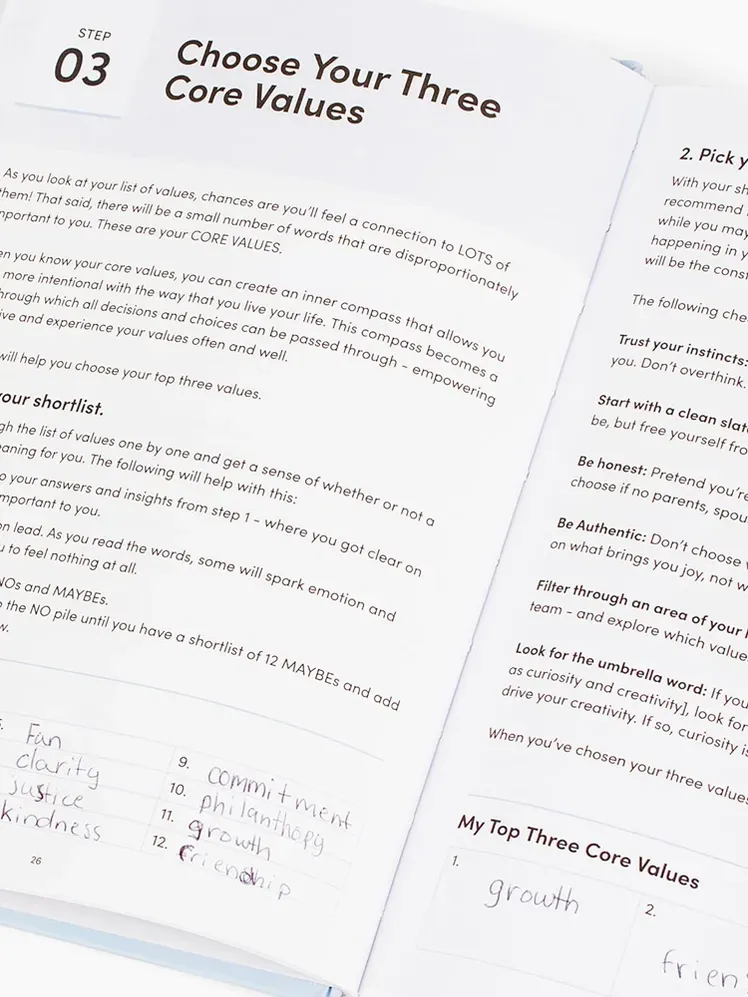 STEP
03
Choose Your Three
Core Values
As you look at your list of values, chances are you'll feel a connection to LOTS of
them! That said, there will be a small number of words that are disproportionately
mportant to you. These are your CORE VALUES.
en you know your core values, you can create an inner compass that allows you
more intentional with the way that you live your life. This compass becomes a
hrough which all decisions and choices can be passed through - empowering
ive and experience your values often and well.
will help you choose your top three values.
your shortlist.
gh the list of values one by one and get a sense of whether or not a
eaning for you. The following will help with this:
o your answers and insights from step 1 - where you got clear on
mportant to you.
on lead. As you read the words, some will spark emotion and
u to feel nothing at all.
NOs and MAYBEs.
the NO pile until you have a shortlist of 12 MAYBEs and add
w.
Fun
clarity
justice
kindness
9. commitment
10. philanthopy
11. growth
12. friendhip
26
2. Pick y
With your sh
recommend
while you may
happening in y
will be the cons
The following che
Trust your instincts:
you. Don't overthink.
Start with a clean slat
be, but free yourself fro
Be honest: Pretend you're
choose if no parents, spou
Be Authentic: Don't choose
on what brings you joy, not w
Filter through an area of your
team - and explore which value
Look for the umbrella word: If you
as curiosity and creativity], look for
drive your creativity. If so, curiosity is
When you've chosen your three values
My Top Three Core Values
1. growth
2. frien